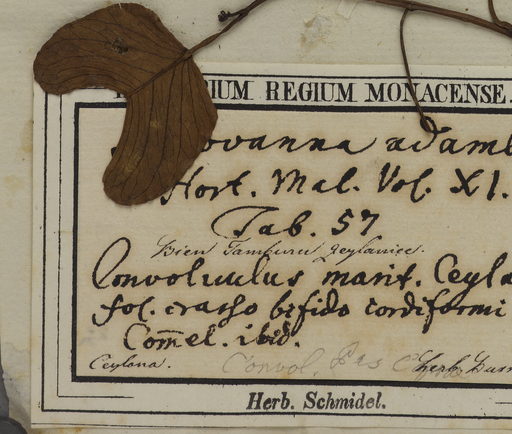 IUM REGIUM MONACENSE.
ovanna adamb
Hort. Mal. Vol. XI.
Tab. 57
Bien Tamburu Zeylanice.
Convolvulus marit. Ceyla
fol. crasso bifido cordiformi
Com̄el. ibid.
Ceylona. Convol. Pes C Herb. Burm
Herb. Schmidel.